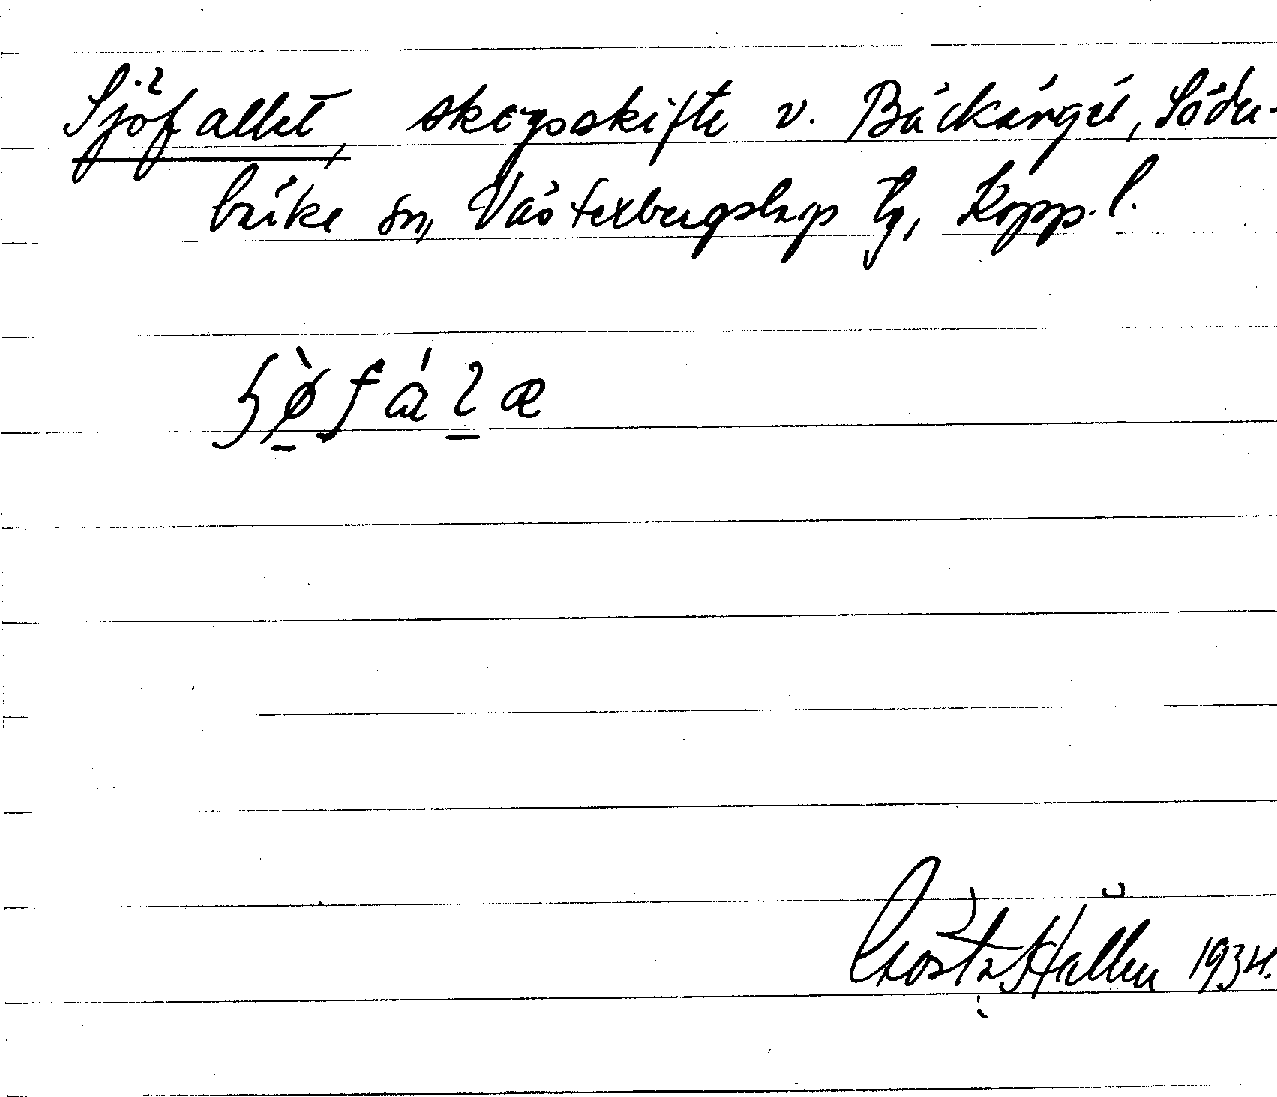 Sjöfallet, skogsskifte v. Bäckängel, Söder-
bärke sn, Västerbergslags tg, Kopp. l.
Gösta Hallin 1934.